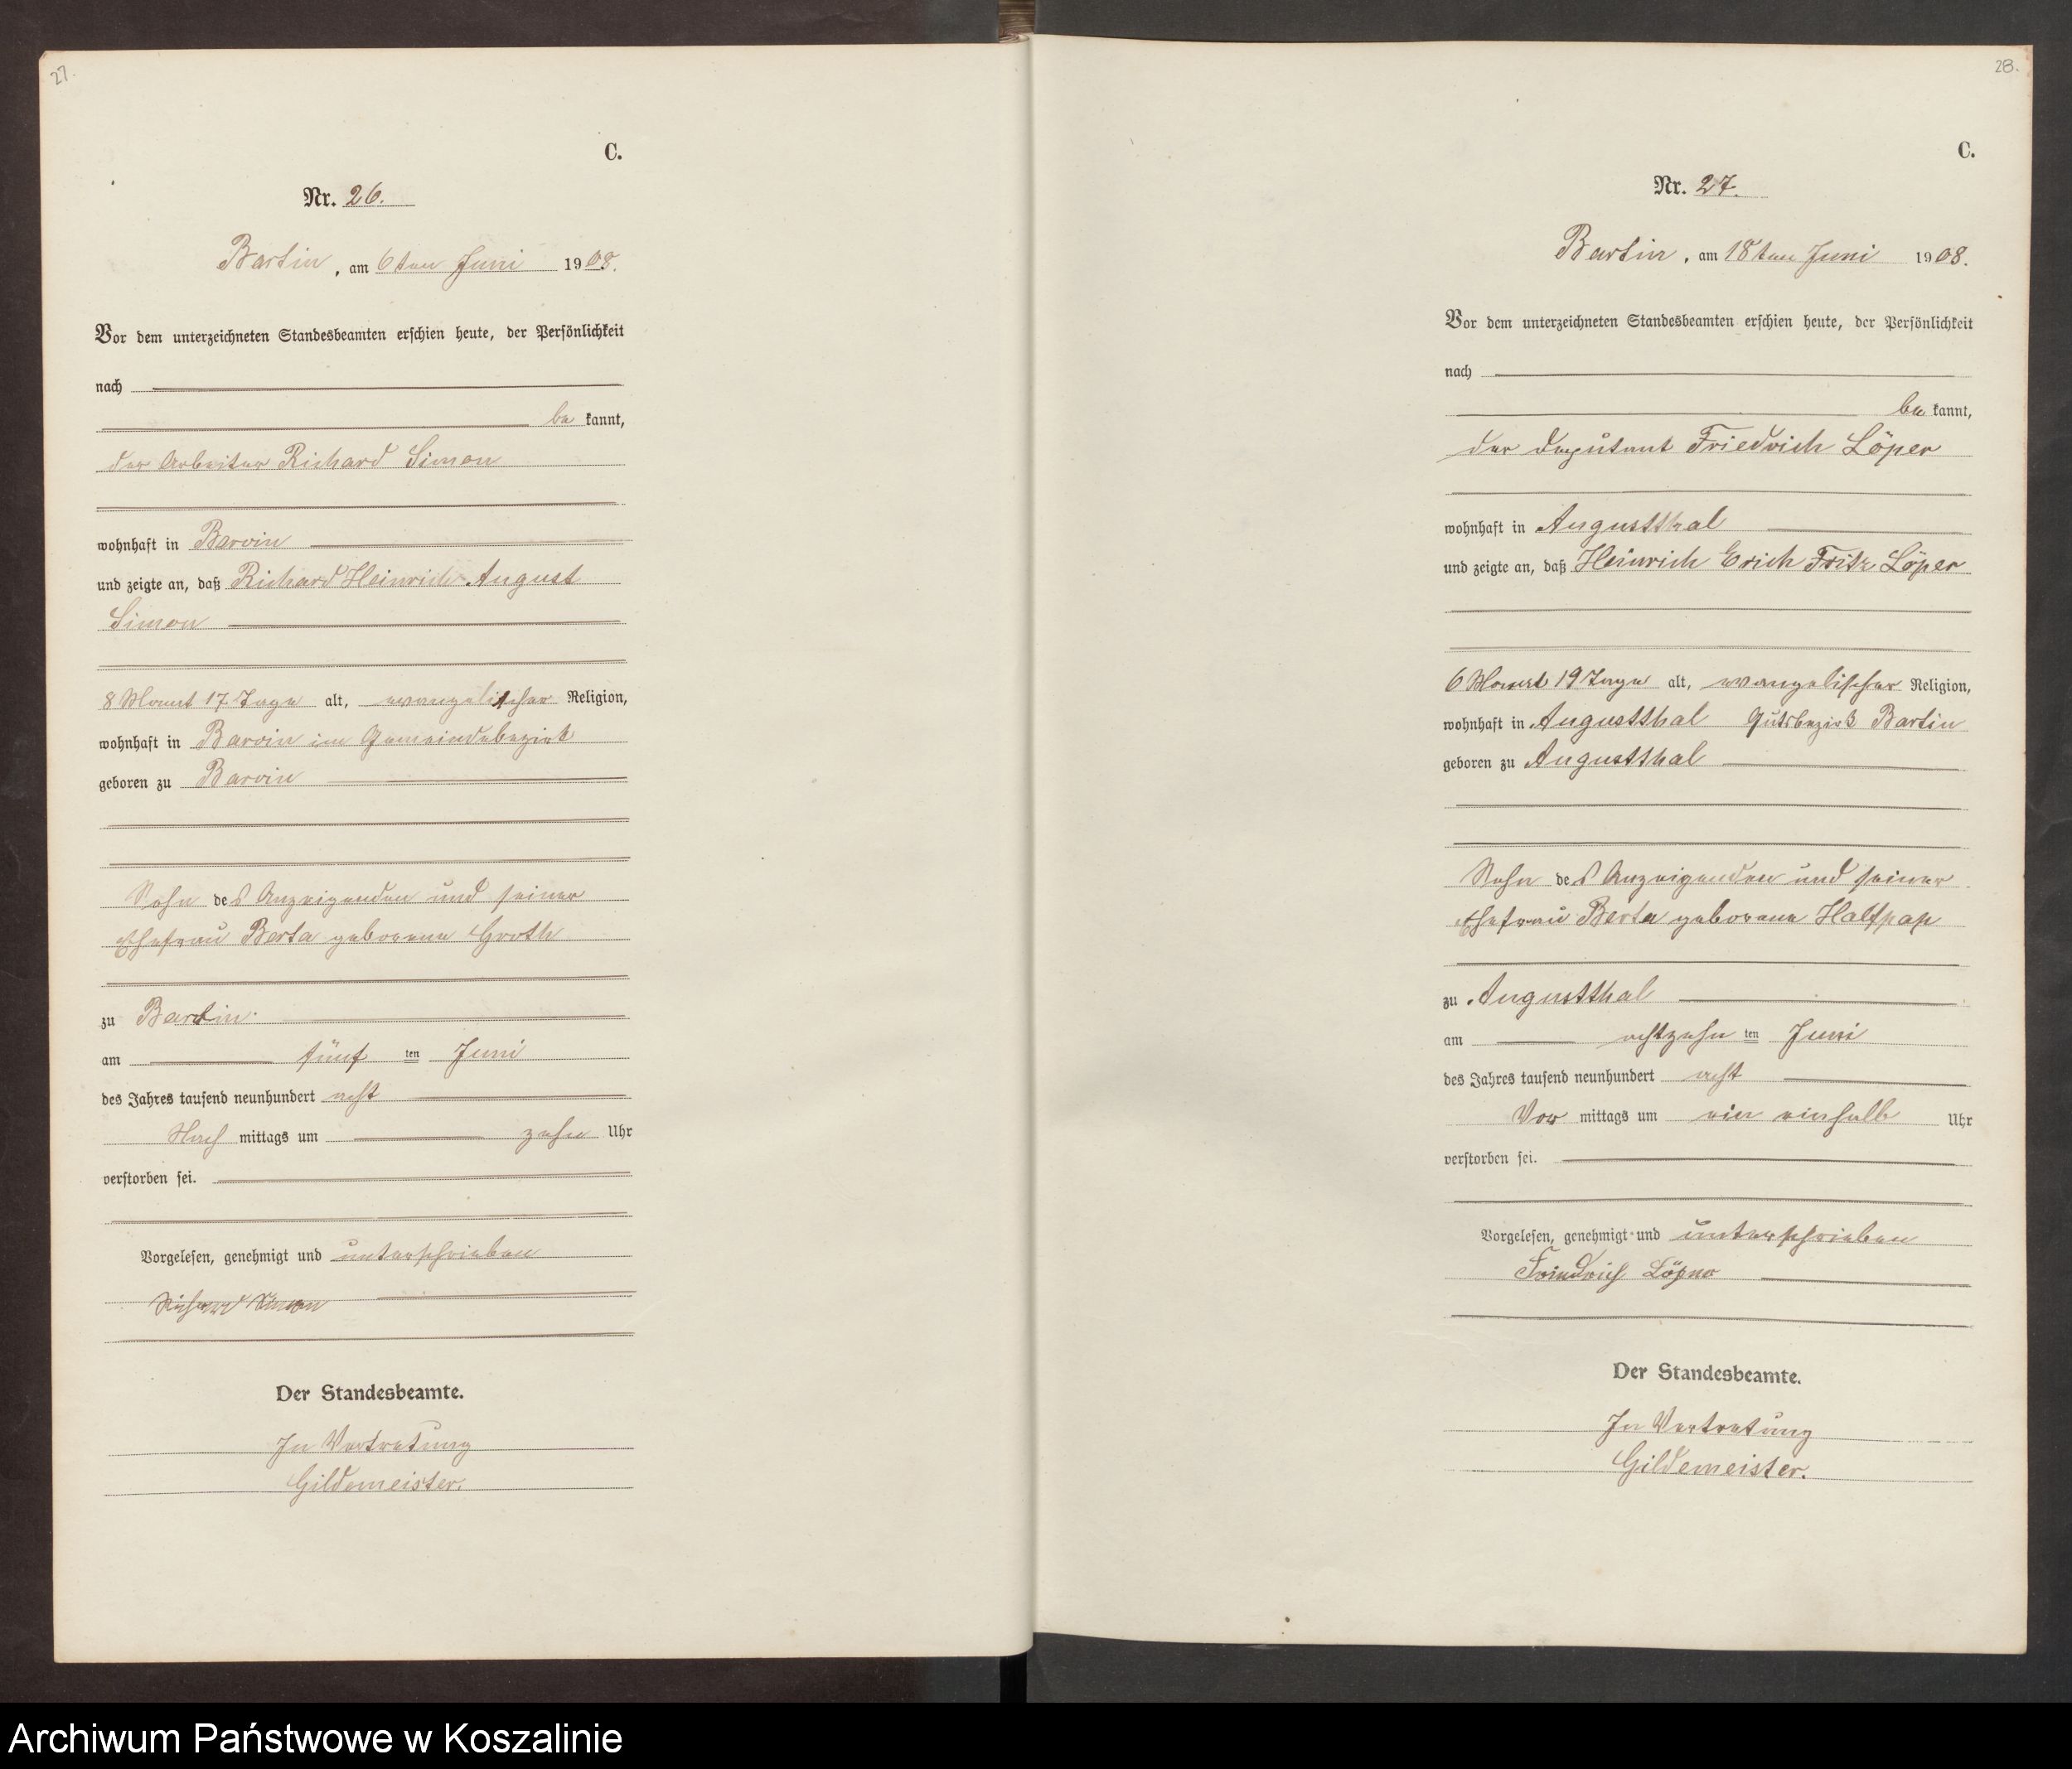 27.
C.
Nr. 26.
Bartin, am 6ten Juni 1908.
Vor dem unterzeichneten Standesbeamten erschien heute, der Persönlichkeit
nach
be kannt,
der Arbeiter Richard Simon
wohnhaft in Barvin
und zeigte an, daß Richard Heinrich August
Simon
8 Monat 17 Tage alt, evangelischer Religion,
wohnhaft in Barvin im Gemeindebezirk
geboren zu Barvin
Sohn des Anzeigenden und seiner
Ehefrau Berta geborene Groth
zu Barvin
am fünf ten Juni
des Jahres tausend neunhundert acht
Nach mittags um zehn Uhr
verstorben sei.
Vorgelesen, genehmigt und unterschrieben
Richard Simon
Der Standesbeamte.
In Vertretung
Gildemeister.
28.
C.
Nr. 27.
Bartin, am 18ten Juni 1908.
Vor dem unterzeichneten Standesbeamten erschien heute, der Persönlichkeit
nach
be kannt,
der Deputant Friedrich Löper
wohnhaft in Augustthal
und zeigte an, daß Heinrich Erich Fritz Löper
6 Monat 19 Tage alt, evangelischer Religion,
wohnhaft in Augustthal Gutsbezirk Bartin
geboren zu Augustthal
Sohn des Anzeigenden und seiner
Ehefrau Berta geborene Halfpap
zu Augustthal
am achtzehn ten Juni
des Jahres tausend neunhundert acht
Vor mittags um ein einhalb Uhr
verstorben sei.
Vorgelesen, genehmigt und unterschrieben
Friedrich Löper
Der Standesbeamte.
In Vertretung
Gildemeister.
Archiwum Państwowe w Koszalinie